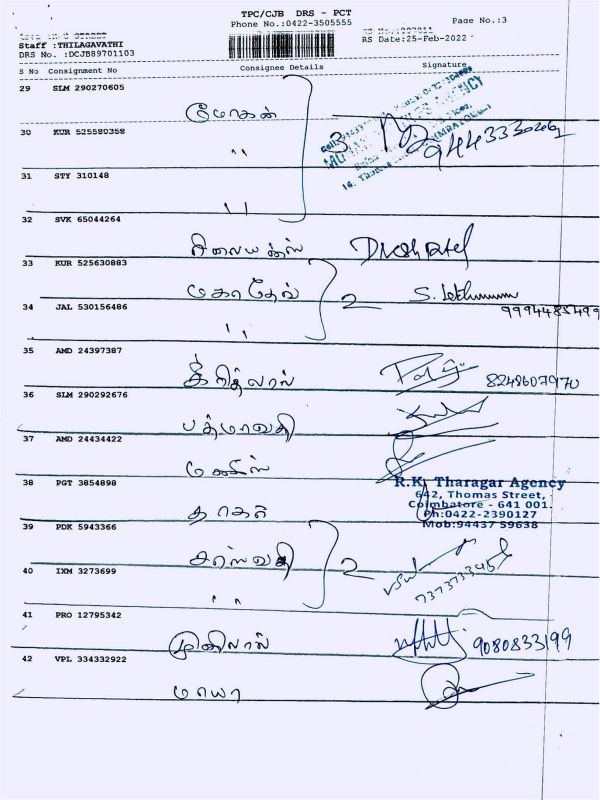 TPC/CJB DRS - PCT
Phone No.:0422-3505555
Page No.:3
Staff :THILAGAVATHI
DRS No. :DCJB89701103
RS Date:25-Feb-2022
S No Consignment No Consignee Details Signature
29 SLM 290270605
மோகன்
30 KUR 525580358
"
3
31 STY 310148
"
32 SVK 65044264
33 KUR 525630883
மகாதேவ் 2
9994485499
34 JAL 530156486
"
35 AMD 24397387
8248607970
36 SLM 290292676
பத்மாவதி
37 AMD 24434422
38 PGT 3854898
R.K. Tharagar Agency
642, Thomas Street,
Coimbatore - 641 001.
Ph:0422-2390127
Mob:94437 59638
39 PDK 5943366
சரஸ்வதி 2
40 IXM 3273699
"
41 PRO 12795342
முனிலால்
9080833199
42 VPL 334332922
மாயா